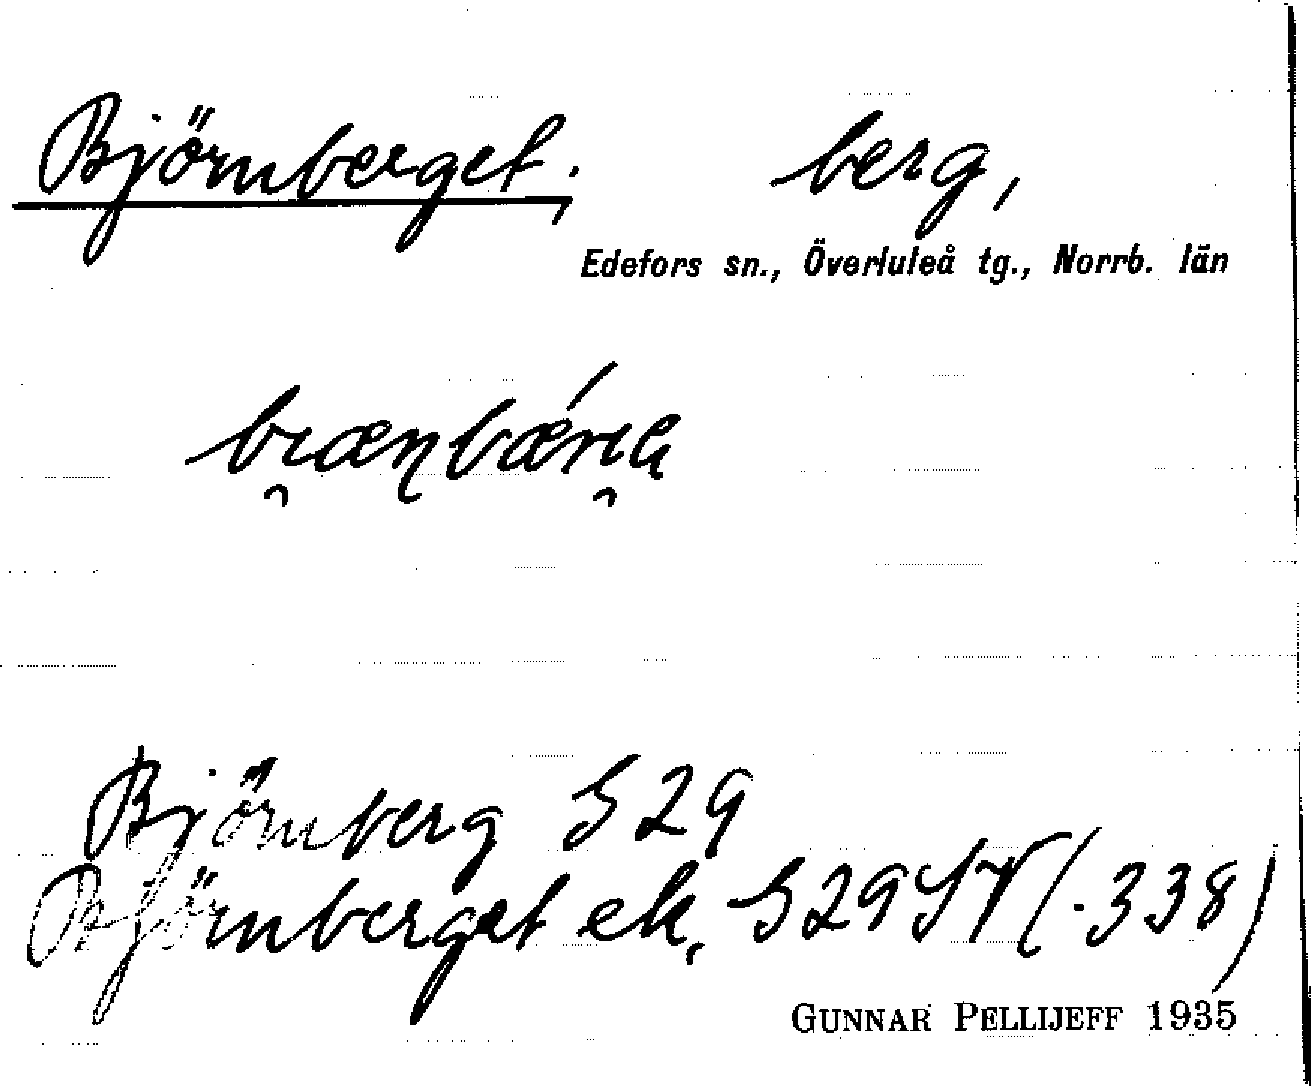 Björnberget, berg,
Edefors sn., Överluleå tg., Norrb. län
Björnberg S 29
Björnberget ek. S 29 SV (·338)
GUNNAR PELLIJEFF 1935